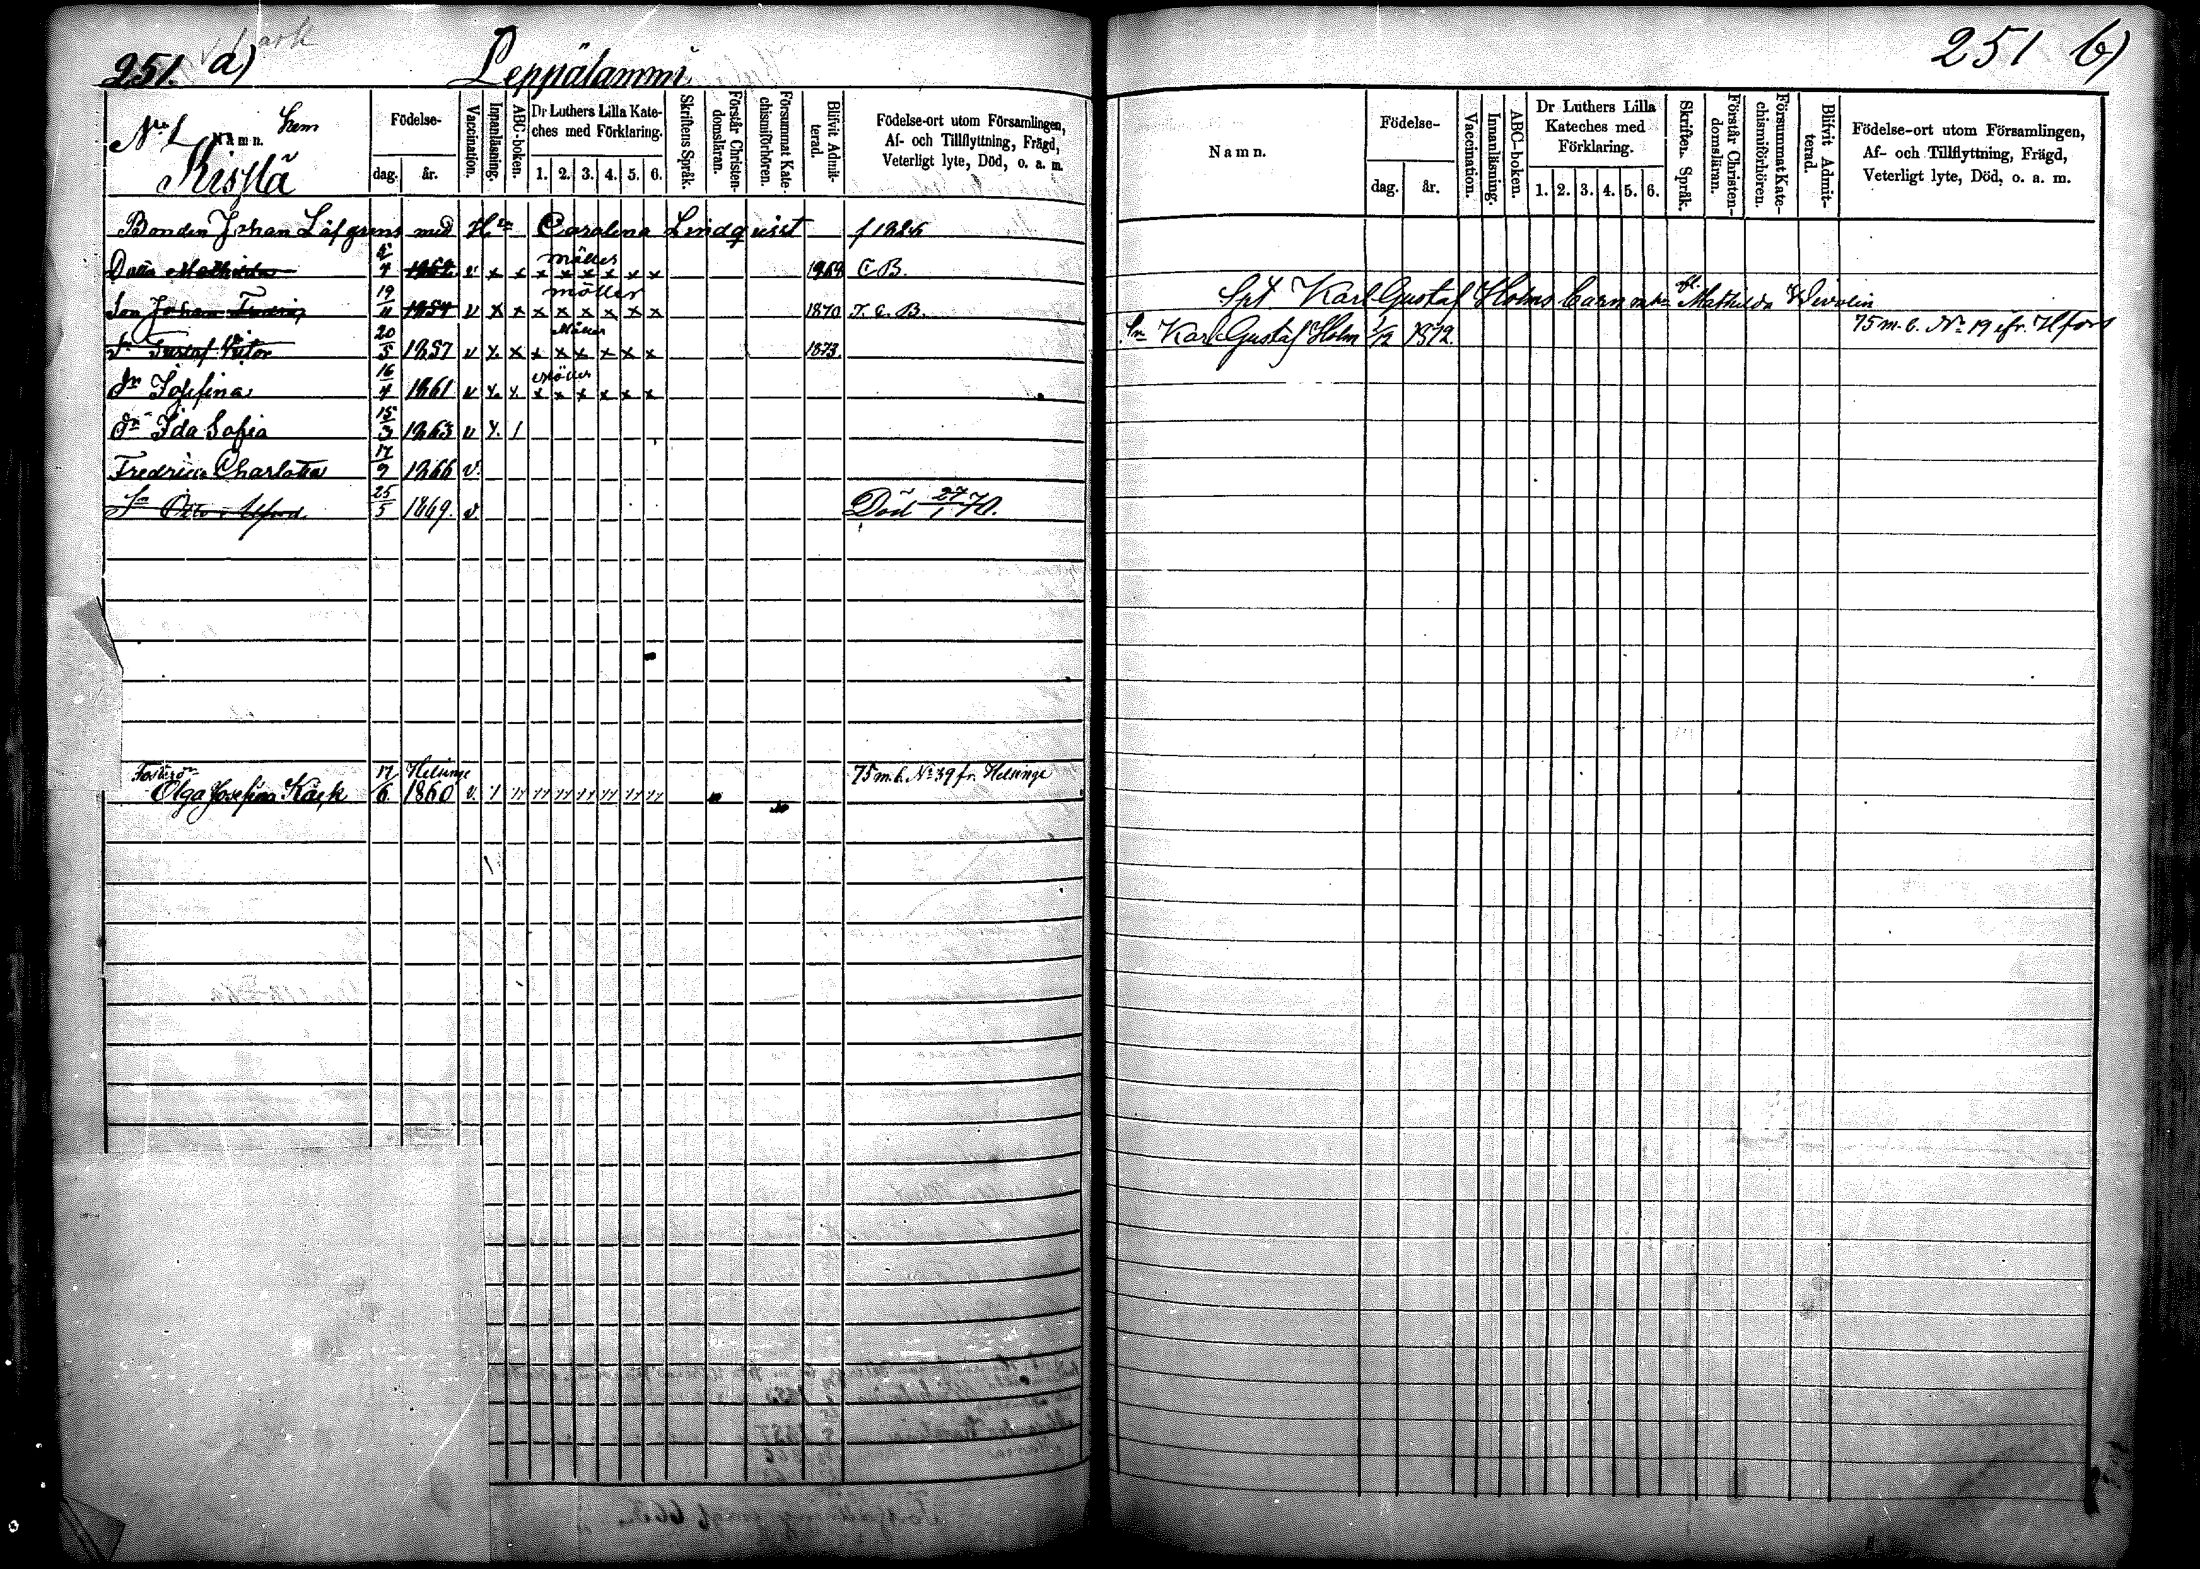 251. a)
Leppälammi
No 1 hem
Namn.
Kisslä
Födelse-
dag. år.
Vaccination.
Innanläsning.
ABC-boken.
Dr Luthers Lilla Kate-
ches med Förklaring.
1. 2. 3. 4. 5. 6.
Skriftens Språk.
Förstår Christen-
domsläran.
Försummat Kate-
chismiförhören.
Blifvit Admit-
terad.
Födelse-ort utom Församlingen,
Af- och Tillflyttning, Frägd,
Veterligt lyte, Död, o. a. m.
Bonden Johan Löfgrens med Carolina Lindqvist
Mathilda v x x x x x x x x C. B.
Son Johan 19 1854 v x x x x x x x x 1870
Gustaf 20/5 1857 v x x x x x x x x 1873.
Josefina 16/4 1861 v x x x x x x x x
Ida Sofia 15/3 1863 v x 1
Fredrica Charlotta 17/9 1866 v.
Sn Otto Alfred 25/5 1869. v. Död 27/1 70.
Olga Josefina 17/6 Helsinge 1860 v. 75 m. b. No 39 fr. Helsinge
251 b)
Namn.
Födelse-
dag. år.
Vaccination.
Innanläsning.
ABC-boken.
Dr Luthers Lilla
Kateches med
Förklaring.
1. 2. 3. 4. 5. 6.
Skriften. Språk.
Förstår Christen-
domsläran.
Försummat Kate-
chismiförhören.
Blifvit Admit-
terad.
Födelse-ort utom Församlingen,
Af- och Tillflyttning, Frägd,
Veterligt lyte, Död, o. a. m.
Karl Gustaf Holms barn Mathilda
Sn Karl Gustaf Holm 1/12 1872. 75 m. b. No 19 fr. Hfors